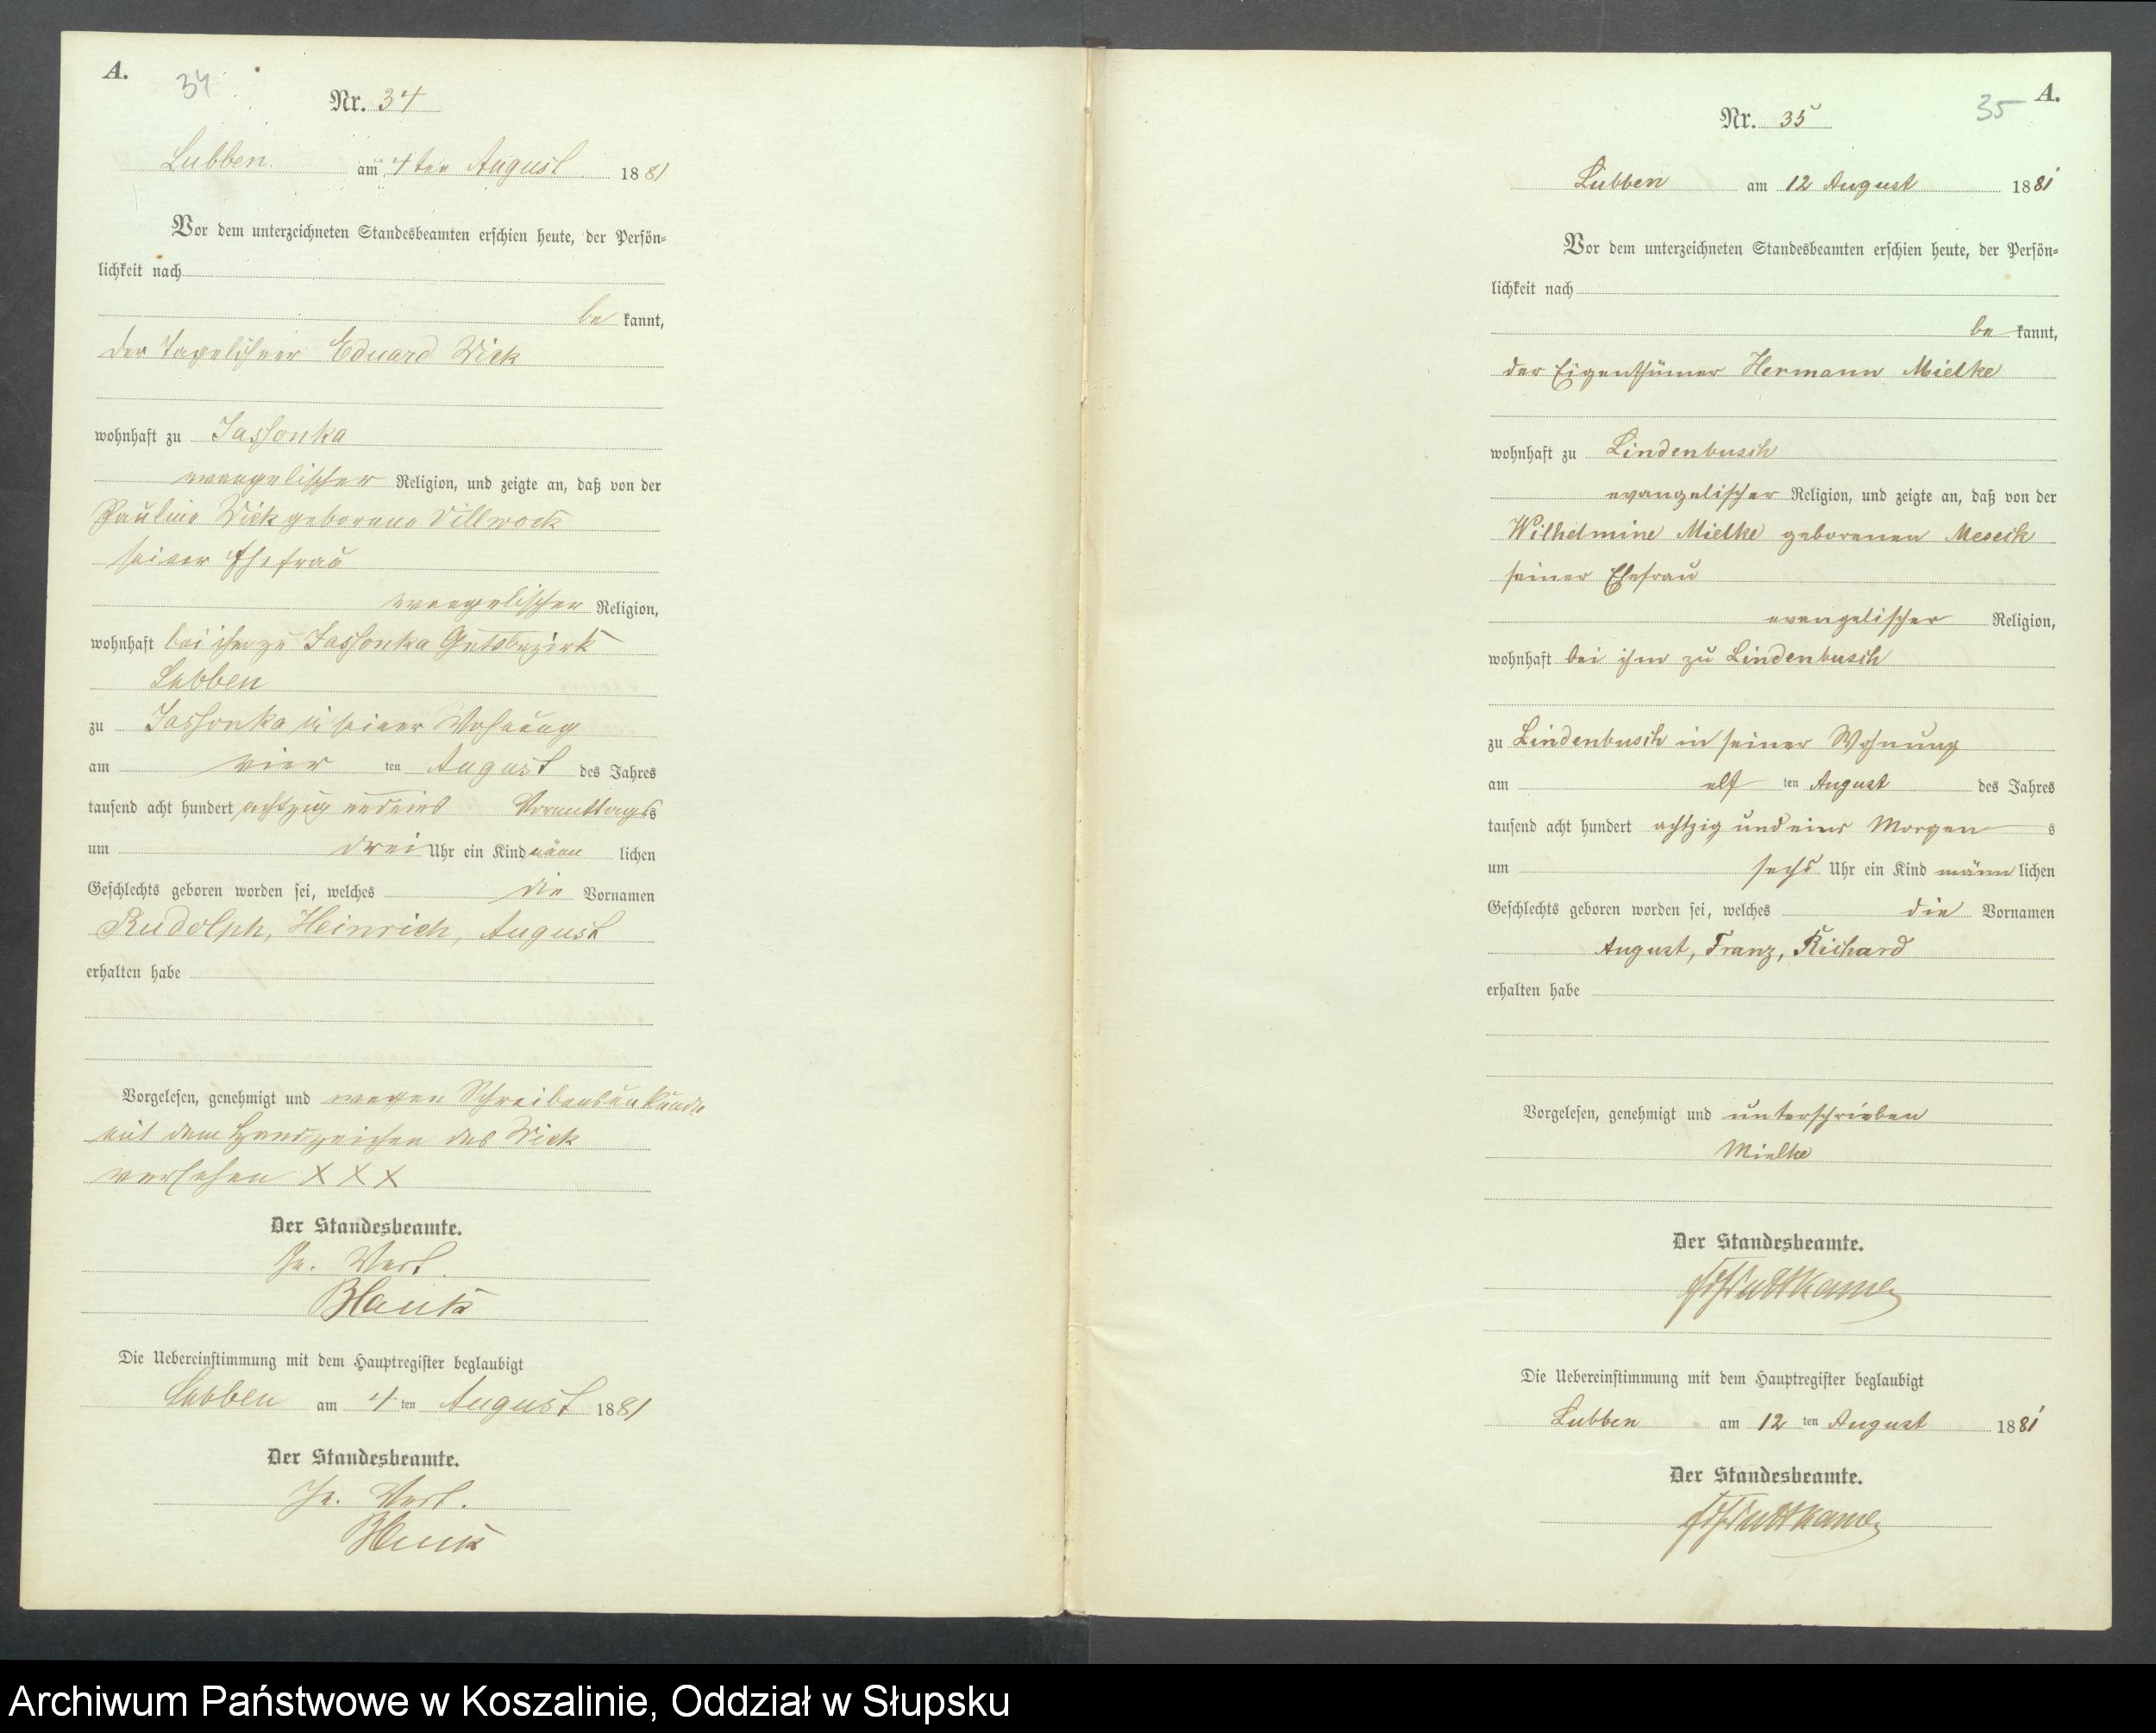 A.
34
Nr. 34
Lubben am 4ten August 1881
Vor dem unterzeichneten Standesbeamten erschien heute, der Persön-
lichkeit nach
be kannt,
der Tagelöhner Eduard Wick
wohnhaft zu Jassonka
evangelischer Religion, und zeigte an, daß von der
Pauline Wick geborene Villwock
seiner Ehefrau
evangelischer Religion,
wohnhaft bei ihm zu Jassonka Gutsbezirk
Lubben
zu Jassonka in seiner Wohnung
am vier ten August des Jahres
tausend acht hundert achtzig und eins Vormittags
um drei Uhr ein Kind männ lichen
Geschlechts geboren worden sei, welches die Vornamen
Rudolph, Heinrich, August
erhalten habe
Vorgelesen, genehmigt und wegen Schreibensunkunde
mit dem Handzeichen des Wick
versehen X X X
Der Standesbeamte.
In Vert.
Die Uebereinstimmung mit dem Hauptregister beglaubigt
Lubben am 4 ten August 1881
Der Standesbeamte.
In Vert.
A.
35
Nr. 35
Lubben am 12 August 1881
Vor dem unterzeichneten Standesbeamten erschien heute, der Persön-
lichkeit nach
be kannt,
der Eigenthümer Hermann Mielke
wohnhaft zu Lindenbusch
evangelischer Religion, und zeigte an, daß von der
Wilhelmine Mielke geborenen Meseck
seiner Ehefrau
evangelischer Religion,
wohnhaft bei ihm zu Lindenbusch
zu Lindenbusch in seiner Wohnung
am elf ten August des Jahres
tausend acht hundert achtzig und eins Morgen s
um sechs Uhr ein Kind männ lichen
Geschlechts geboren worden sei, welches die Vornamen
August, Franz, Richard
erhalten habe
Vorgelesen, genehmigt und unterschrieben
Mielke
Der Standesbeamte.
Die Uebereinstimmung mit dem Hauptregister beglaubigt
Lubben am 12 ten August 1881
Der Standesbeamte.
Archiwum Państwowe w Koszalinie, Oddział w Słupsku